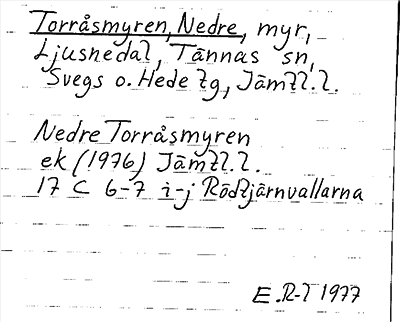 Torråsmyren, Nedre, myr,
Ljusnedal, Tännäs sn,
Svegs o. Hede tg, Jämtl.l.
Nedre Torråsmyren
ek (1976) Jämtl.l.
17 C 6-7 i-j Rödtjärnvallarna
E.R-T 1977